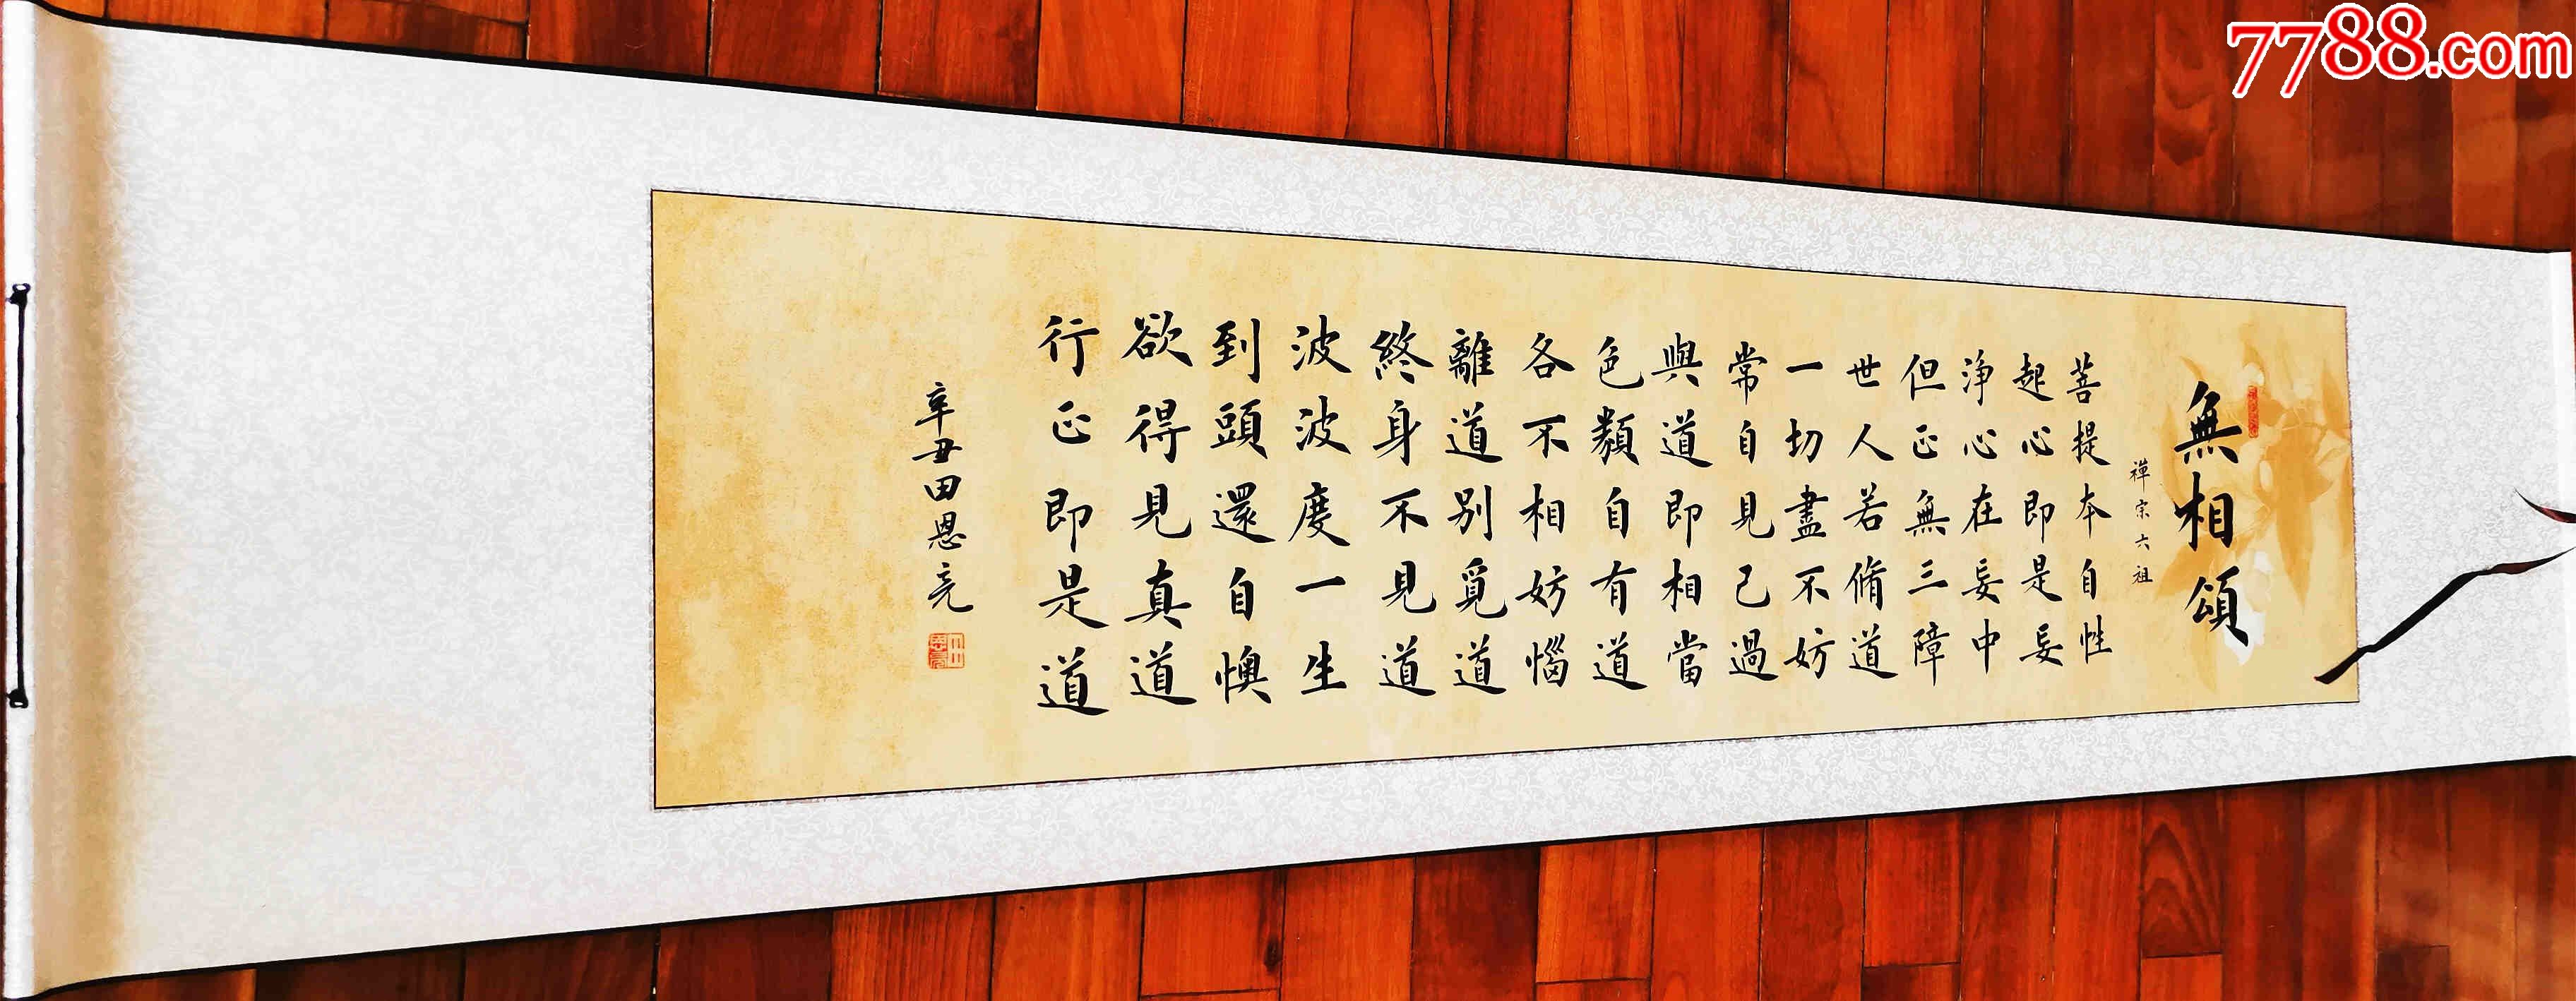 7788.com
無相頌
禪宗六祖
菩提本自性
起心即是妄
淨心在妄中
但正無三障
世人若脩道
一切盡不妨
常自見己過
與道即相當
色類自有道
各不相妨惱
離道別覓道
終身不見道
波波度一生
到頭還自懊
欲得見真道
行正即是道
辛丑田恩亮